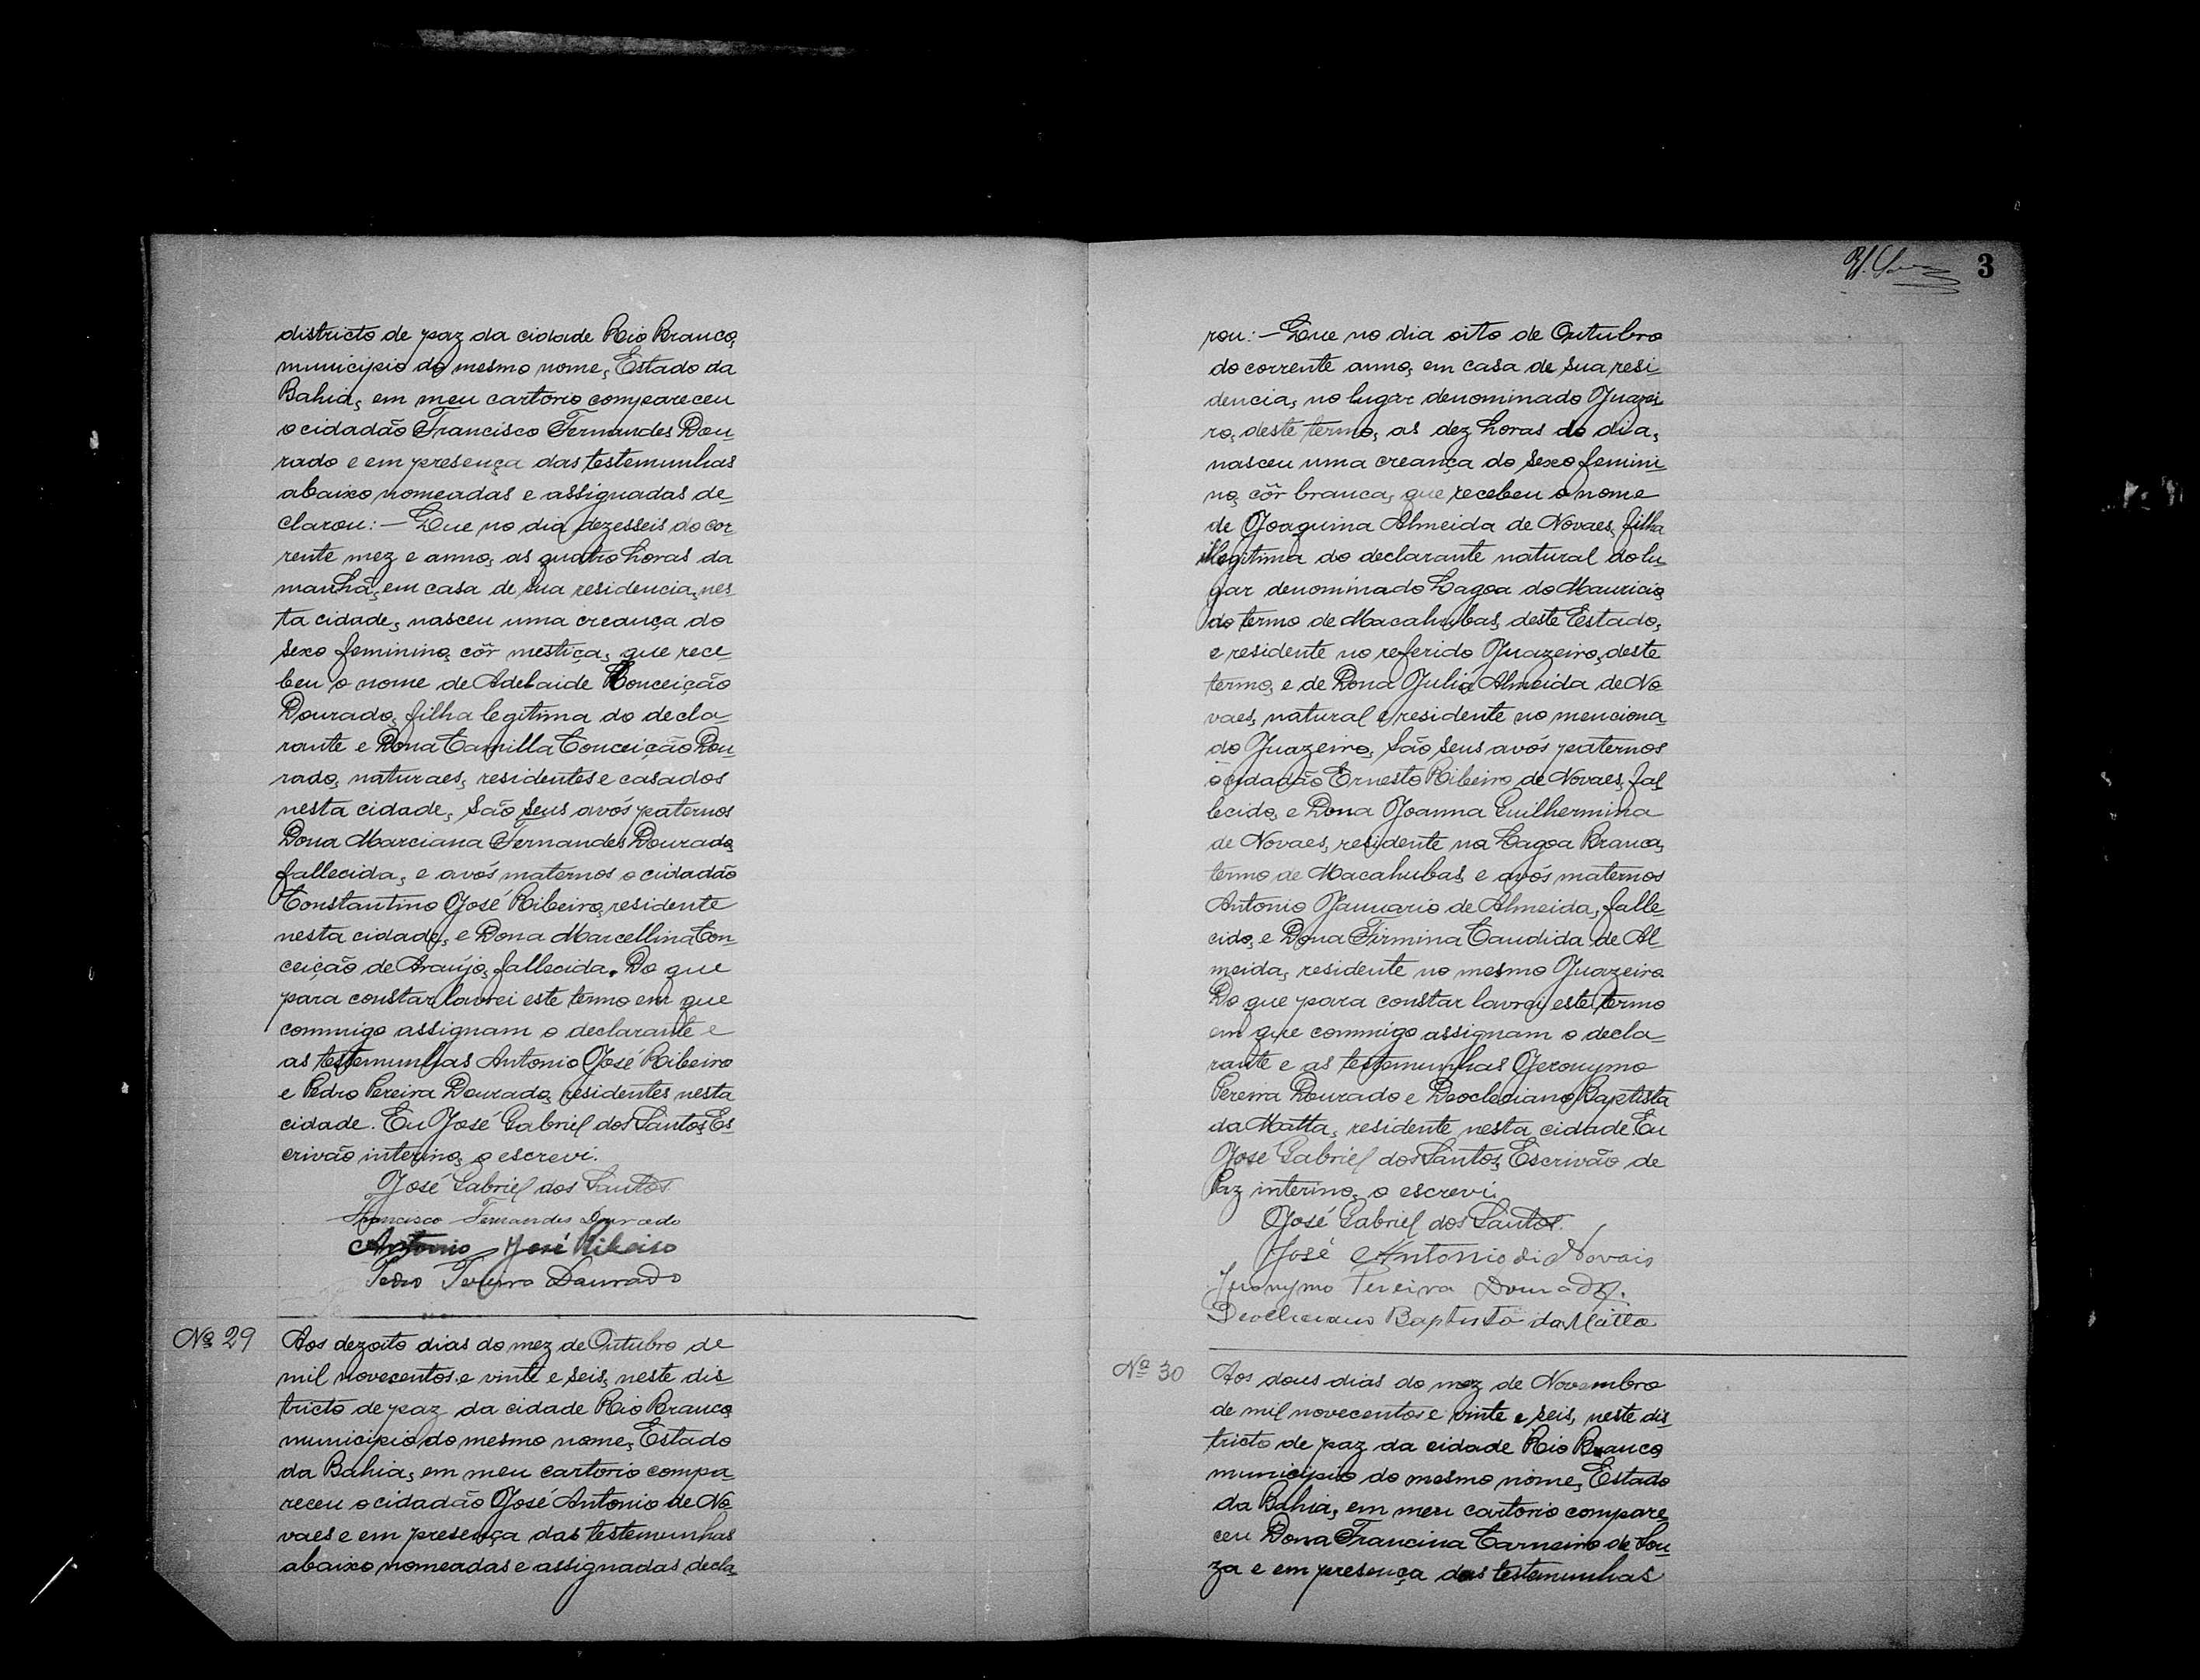 districto de paz da cidade Rio Branco,
municipio do mesmo nome, Estado da
Bahia, em meu cartorio compareceu
o cidadão Francisco Fernandes Dou-
rado e em presença das testemunhas
abaixo nomeadas e assignadas de-
clarou: — Que no dia dezesseis do cor-
rente mez e anno, as quatro horas da
manhã, em casa de sua residencia, nes-
ta cidade, nasceu uma creança do
sexo feminino, côr mestiça, que rece-
beu o nome de Adelaide Conceição
Dourado, filha legitima do decla-
rante e Dona Camilla Conceição Dou-
rado, naturaes, residentes e casados
nesta cidade, são seus avós paternos
Dona Marciana Fernandes Dourado,
fallecida, e avós maternos o cidadão
Constantino José Ribeiro, residente
nesta cidade, e Dona Marcellina Con-
ceição de Araújo, fallecida. Do que
para constar lavrei este termo em que
commigo assignam o declarante e
as testemunhas Antonio José Ribeiro
e Pedro Pereira Dourado, residentes nesta
cidade. Eu José Gabriel dos Santos, Es-
crivão interino, o escrevi.
José Gabriel dos Santos
Francisco Fernandes Dourado
Antonio José Ribeiro
Pedro Pereira Dourado
Nº 29
Aos dezoito dias do mez de Outubro de
mil novecentos e vinte e seis, neste dis-
tricto de paz da cidade Rio Branco,
municipio do mesmo nome, Estado
da Bahia, em meu cartorio compa-
receu o cidadão José Antonio de No-
vaes e em presença das testemunhas
abaixo nomeadas e assignadas decla-
3
rou: — Que no dia oito de Outubro
do corrente anno, em casa de sua resi-
dencia, no lugar denominado Juazei-
ro, deste termo, as dez horas do dia,
nasceu uma creança do sexo femini-
no, côr branca, que recebeu o nome
de Joaquina Almeida de Novaes, filha
illegitima do declarante natural do lu-
gar denominado Lagoa do Mauricio,
do termo de Macahubas, deste Estado,
e residente no referido Juazeiro, deste
termo, e de Dona Julia Almeida de No-
vaes, natural e residente no menciona-
do Juazeiro, são seus avós paternos
o cidadão Ernesto Ribeiro de Novaes, fal-
lecido, e Dona Joanna Guilhermina
de Novaes, residente na Lagoa Branca,
termo de Macahubas, e avós maternos
Antonio Januario de Almeida, falle-
cido, e Dona Firmina Candida de Al-
meida, residente no mesmo Juazeiro.
Do que para constar lavrei este termo
em que commigo assignam o decla-
rante e as testemunhas Jeronymo
Pereira Dourado e Deocleciano Baptista
da Matta, residente nesta cidade. Eu
José Gabriel dos Santos, Escrivão de
Paz interino, o escrevi.
José Gabriel dos Santos.
José Antonio di Novais
Jeronymo Pereira Dourado.
Deocleciano Baptista da Matta
Nº 30
Aos dous dias do mez de Novembro
de mil novecentos e vinte e seis, neste dis-
tricto de paz da cidade Rio Branco,
municipio do mesmo nome, Estado
da Bahia, em meu cartorio compare-
ceu Dona Francina Carneiro de Sou-
za e em presença das testemunhas